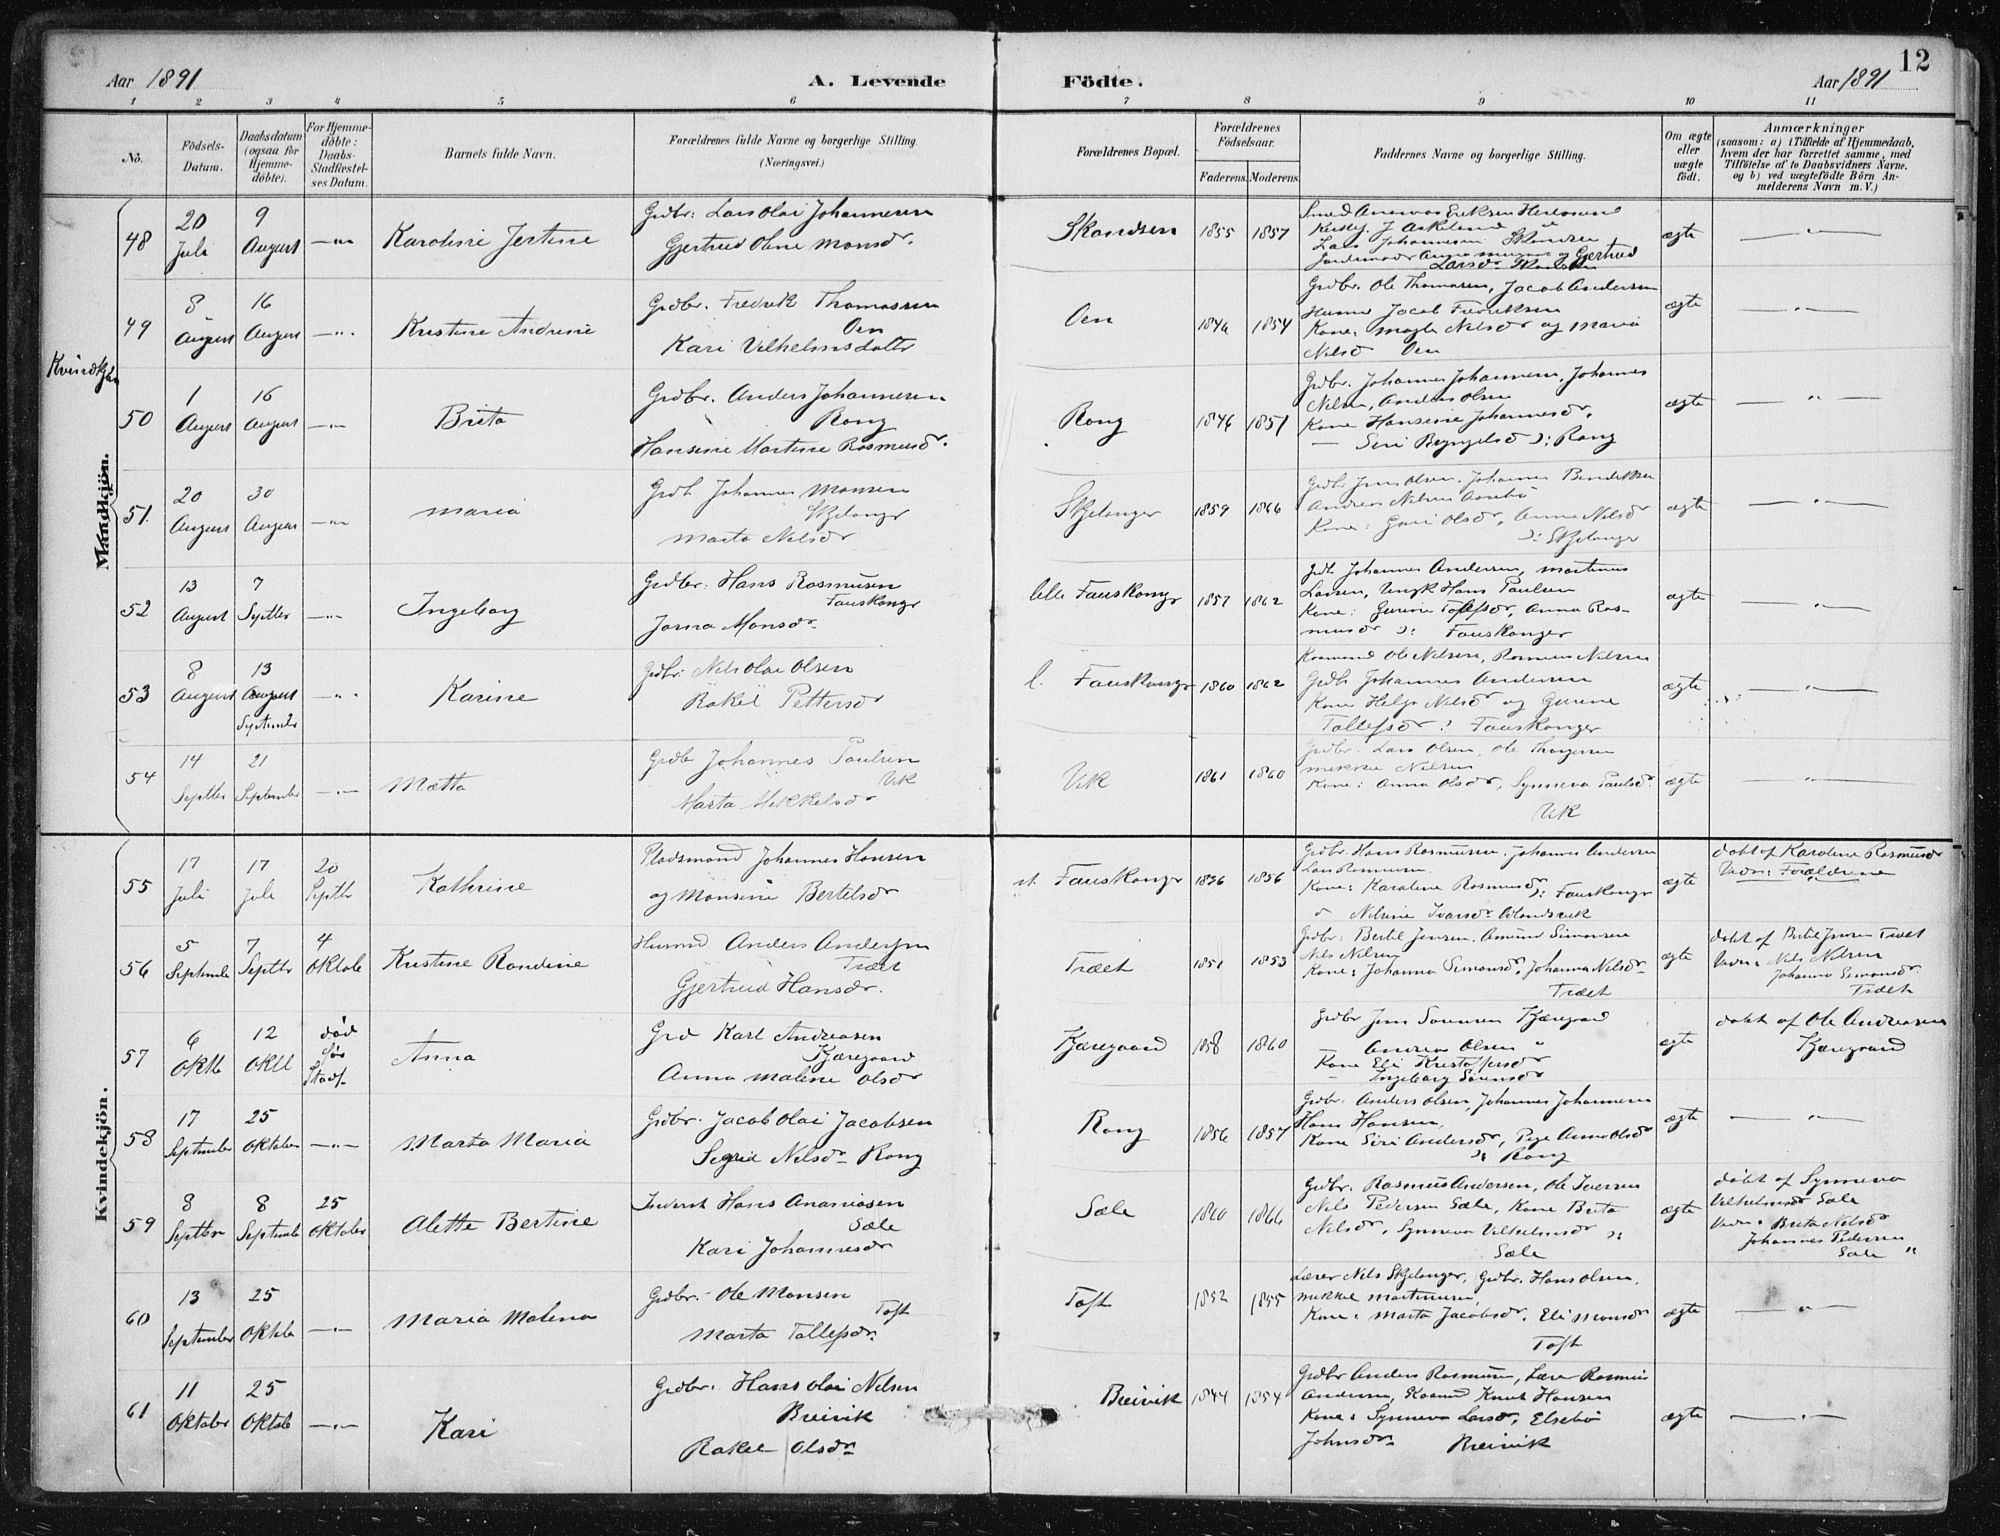 12
Aar 1891
A. Levende Födte.
Aar 1891
1 2 3 4 5 6 7 8 9 10 11
No.
Födsels-Datum.
Daabsdatum (ogsaa for Hjemme-döbte).
For Hjemme-döbte: Daabs-Stadfæstel-ses Datum.
Barnets fulde Navn.
Forældrenes fulde Navne og borgerlige Stilling.
(Næringsvei.)
Forældrenes Bopæl.
Forældrenes Födselsaar.
Faderens. Moderens.
Faddernes Navne og borgerlige Stilling.
Om ægte eller uægte födt.
Anmærkninger
(saasom: a) i Tilfælde af Hjemmedaab,
hvem der har forrettet samme, med
Tilföielse af to Daabsvidners Navne,
og b) ved uægtefödte Börn An-
melderens Navn m. V.)
Mandkjön.
Kvindekjön.
48
20 Juli
9 August
Karoline Jertine
Grdbr: Lars Olai Johannesen
Gjertrud Oline Monsdr.
Skandsen
1855 1857
Lars Johannesen Skandsen
ægte
49
8 August
16 August
Kristine Andrine
Grdbr. Fredrik Thomassen
Oen
Kari Vilhelmsdatter
Oen
1846 1854
Grdbr. Ole Thomasen, Jacob Andersen
Jacob Fredriksen
Kone: Magle Nilsdr og Maria
Nilsd Oen
ægte
50
1 August
16 August
Brita
Grdbr. Anders Johannesen
Rong
Hansine Martine Rasmusdr.
Rong
1846 1851
Grdbr. Johannes Johannesen, Johannes
Nilsen, Anders Olsen
Kone Hansine Johannesdr.
— Siri Bryngelsd ɔ: Rong
ægte
51.
20 August
30 August
Maria
Grdb Johannes Monsen
Skjelanger
Marta Nilsdr
Skjelanger
1859 1866
Grdb Jens Olsen, Johannes Bendiksen
Andreas Nilsen
Kone: Guri Olsdr, Anna Nilsdr
ɔ: Skjelanger
ægte
52
13 August
7 Septbr
Ingeborg
Grdbr. Hans Rasmusen
Fauskanger
Jorina Monsdr.
lille Fauskanger
1857 1862
Grdb Johannes Andersen, Martinus
Larsen, Ungk Hans Paulsen
Kone: Gurine Tollefsdr, Anna Ras-
musdr ɔ: Fauskanger
ægte
53
8 August
13 August
September
Karine
Grdbr: Nils Olai Olsen
Rakel Pettersdr
l. Fauskanger
1860 1862
Ole Nilsen, Rasmus Nilsen
Grdb Johannes Andersen
Kone Helga Nilsdr og Gurine
Tollefsdr : Fauskanger
ægte
54
14 Septbr
21 September
Mætta
Grdb Johannes Paulsen
Vik
Marta Mikkelsdr
Vik
1861 1860
Grdbr. Lars Olsen, Ole
Mikkel Nilsen
Kone: Anna Olsdr, Synneva Paulsdr.
Vik
ægte
55
17 Juli
17 Juli
20 Septbr
Kathrine
Pladsmand Johannes Hansen
og Monsine Bertelsdr
st. Fauskanger
1836 1856
Grdbr. Hans Rasmusen, Johannes Andersen
Lars Rasmusen
Kone: Karoline Rasmusdr ɔ: Fauskanger
Nilsine Ivarsdr
ægte
döbt af Karoline Rasmusdr
Vidn: Forældrene
56
5 September
7 Septbr
4 Oktobe
Kristine Randine
Husmd Anders Andersen
Træet
Gjertrud Hansdr.
Træet
1851 1853
Grdbr: Bertil Jensen, Amund Simonsen
Nils Nilsen
Kone: Johanna Simonsdr, Johanna Nilsdr
Træet
ægte
döbt af Bertil Jensen Træet
Vidn: Nils Nilsen
Johanna Simonsdr
Træet
57
6 Oktb
12 Oktb
död för Stadf.
Anna
Grd Karl Andreasen
Kjæregaard
Anna Malene Olsdr
Kjæregaard
1858 1860
Grdbr Jens Sorensen Kjæregaard
— Andreas Olsen "
Kone Eli Kristoffersdr
— Ingeborg Sörensdr
ægte
döbt af Ole Andreasen
Kjæregaard
58
17 September
25 Oktober
Marta Maria
Grdbr. Jacob Olai Jacobsen
Sigrid Nilsdr Rong
Rong
1856 1857
Grdbr. Anders Olsen, Johannes Johannesen
Hans Hansen,
Kone Siri Andersdr, Pige Anna Olsdr
ɔ: Rong
ægte
59
8 Septbr
8 Septemb
25 Oktober
Alette Bertine
Inderst Hans Ananiasen
Sæle
Kari Johannesdr
Sæle
1860 1866
Grdbr. Rasmus Andersen, Ole Iversen
Nils Pedersen Sæle, Kone Brita
Nilsdr, Synneva Vilhelmsdr ɔ:
Sæle
ægte
döbt af Synneva
Vilhelmsdr Sæle
Vidn: Brita Nilsdr
Johannes Pedersen
Sæle "
60
13 September
25 Oktbr
Maria Malena
Grdbr. Ole Monsen
Toft
Marta Tollefsdr.
Toft
1852 1855
Lærer Nils Skjelanger, Grdbr. Hans Olsen,
Mikkel Martinusen
Kone: Marta Jacobsdr. Eli Monsdr
Toft
ægte
61
11 Oktober
25 Oktob
Kari
Grdbr. Hans Olai Nilsen
Breivik
Rakel Olsdr
Breivik
1844 1854
Grdbr Anders Rasmusen, Lærer Rasmus
Andersen, Knut Hansen
Kone: Synneva Larsdr, Elsebe
Johnsdr Breivik
ægte